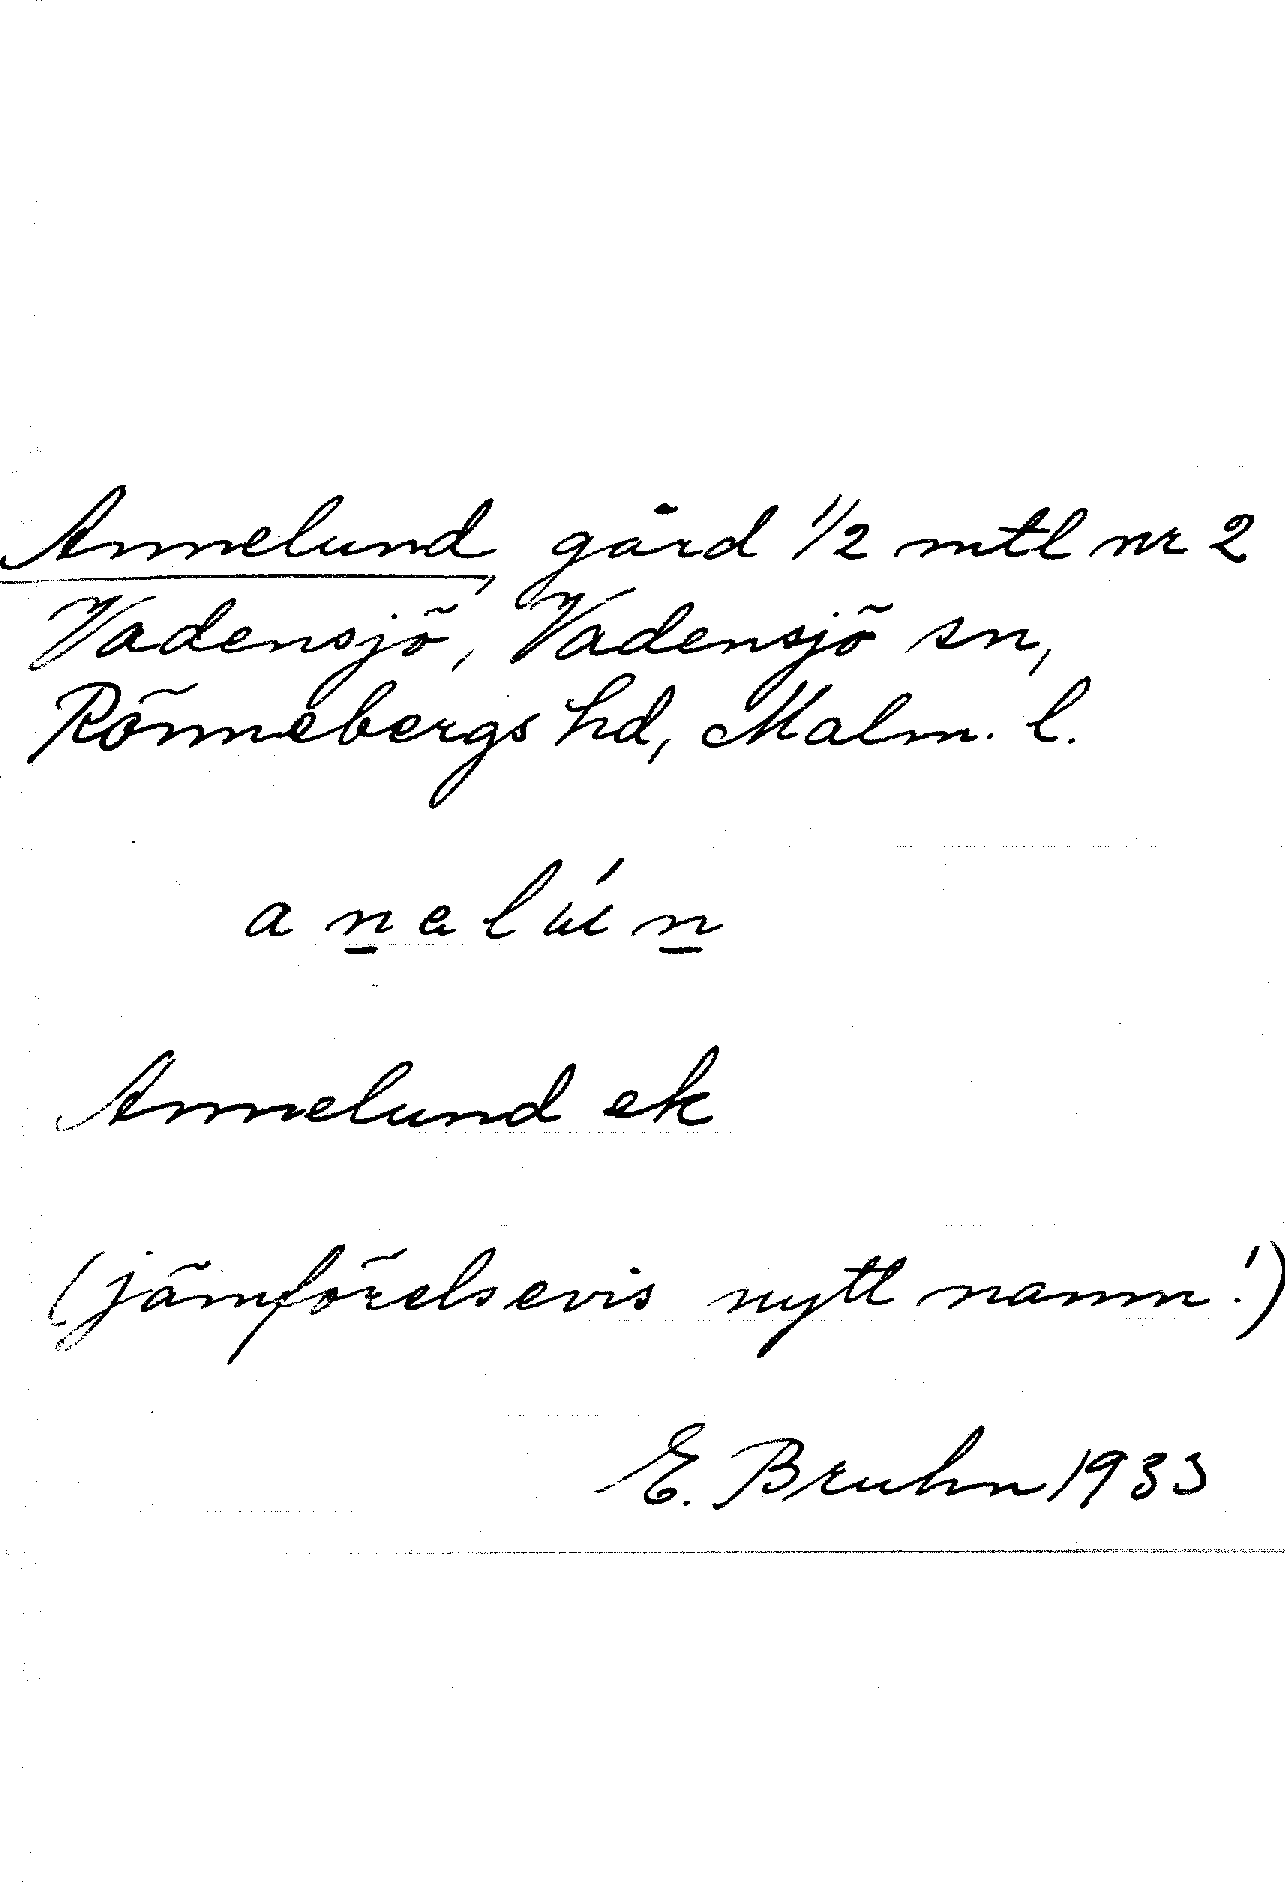 Annelund, gård 1/2 mtl nr 2
Vadensjö, Vadensjö sn,
Rönnebergs hd, Malm. l.
a n e l ú n
Annelund ek
(jämförelsevis nytt namn!)
E. Bruhn 1933